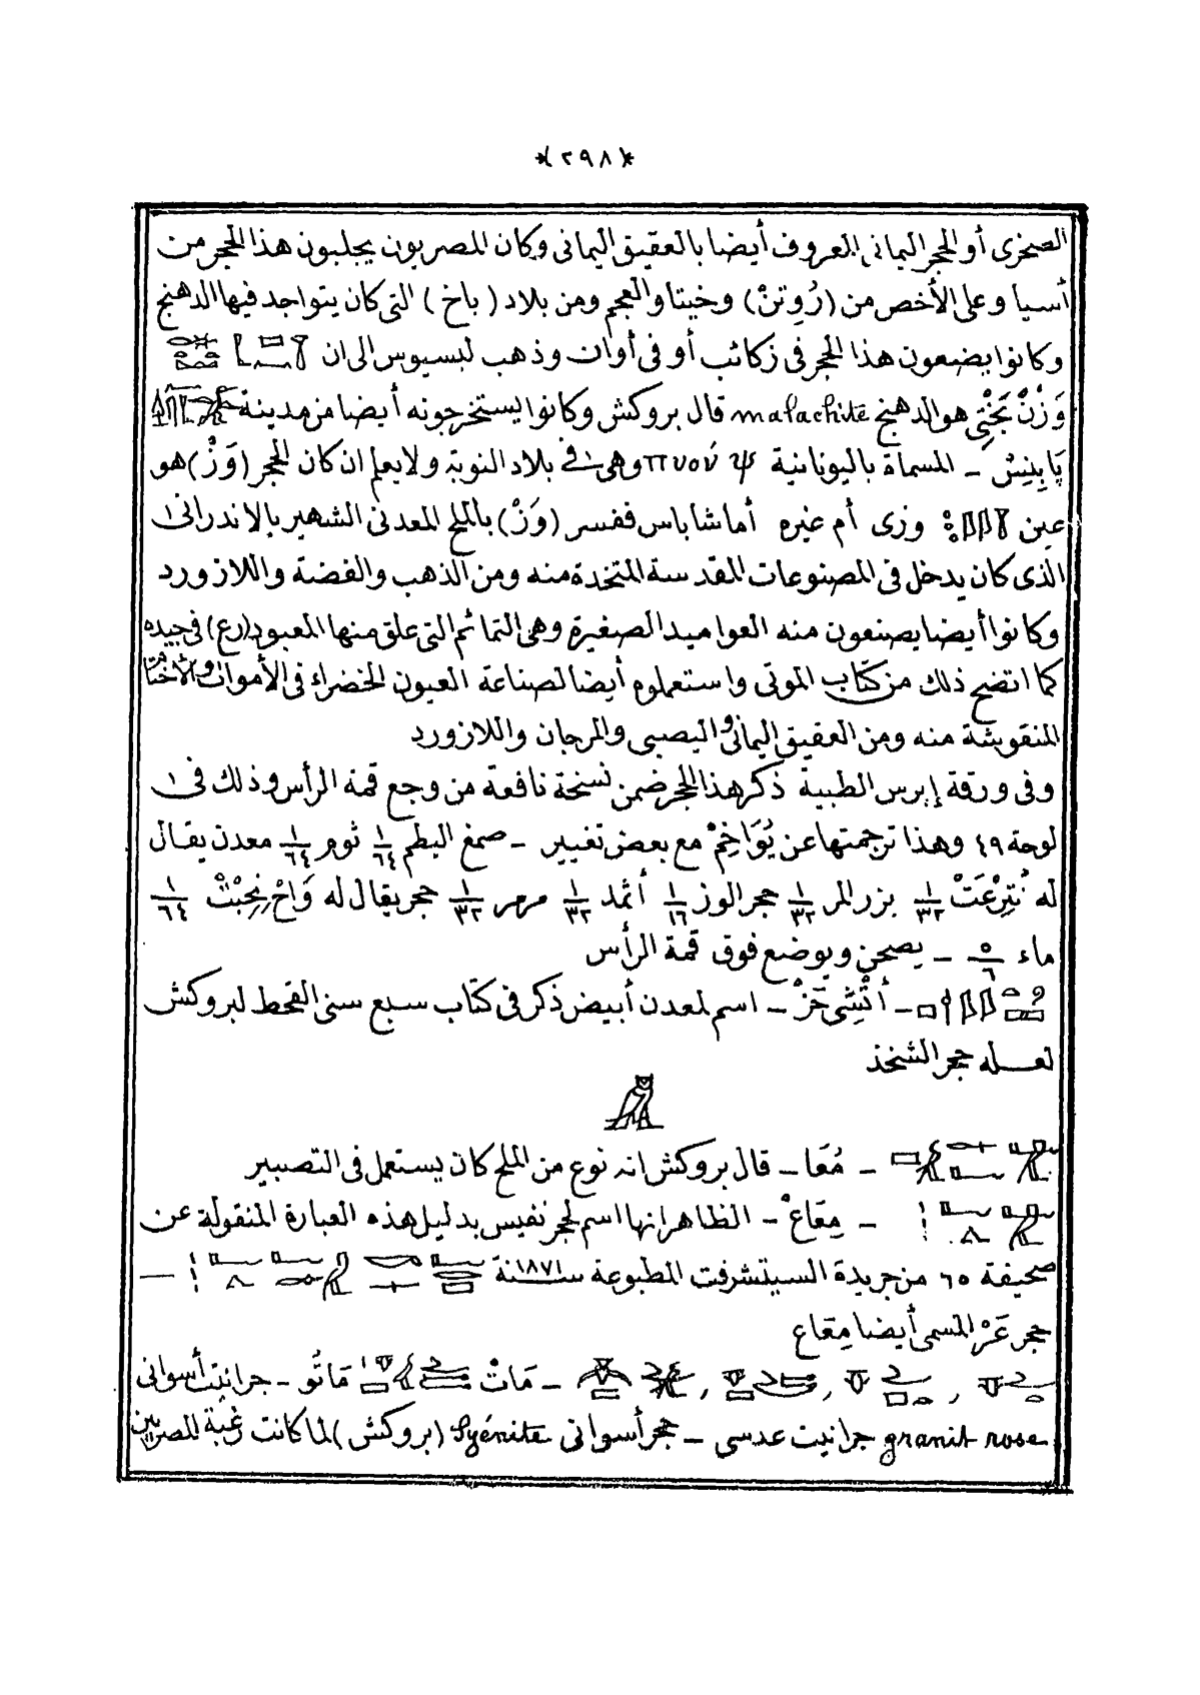 *(٢٩٨)*
الصخرى أو الحجر اليمانى المعروف أيضا بالعقيق اليمانى وكان المصريون يجلبون هذا الحجر من
أسيا وعلى الأخص من (رُوتِنْ) وخيتا والعجم ومن بلاد (باخ) التى كان يتواجد فيها الدهنج
وكانوا يضعون هذا الحجر فى زكائب أو فى أوان وذهب لبسيوس الى ان
هو الدهنج malachite قال بروكش وكانوا يستخرجونه أيضا من مدينة
پَابِنِسْ - المسماة باليونانية وهى فى بلاد النوبة ولا يعلم ان كان الحجر (وَزْ) هو
عين وزى أم غيره أما شاباس ففسر (وَزْ) بالملح المعدنى الشهير بالاندرانى
الذى كان يدخل فى المصنوعات المقدسة المتخذة منه ومن الذهب والفضة واللازورد
وكانوا أيضا يصنعون منه العواميد الصغيرة وهى التمائم التى علق منها المعبود (رع) فى جيده
كما اتضح ذلك من كتاب الموتى واستعملوه أيضا لصناعة العيون الخضراء فى الأموات
المنقوشة منه ومن العقيق اليمانى واليصبى والمرجان واللازورد
وفى ورقة إبرس الطبية ذكر هذا الحجر ضمن نسخة نافعة من وجع قمة الرأس وذلك فى
لوحة ٤٩ وهذا ترجمتها عن يُوَاخِمْ مع بعض تغيير - صمغ البطم ١/٦٤ ثوم ١/٦٤ معدن يقال
له ١/٣٢ بزر المر ١/٣٢ حجر الوز ١/١٦ أثمد ١/٣٢ مرمر ١/٣٢ حجر يقال له ١/٦٤
ماء ٥/٦ - يصحن ويوضع فوق قمة الرأس
- اسم لمعدن أبيض ذكر فى كتاب سبع سنى القحط لبروكش
لعله حجر الشخذ
- مُعَا - قال بروكش انه نوع من الملح كان يستعمل فى التصبير
- مِقَاعْ - الظاهر انها اسم لحجر نفيس بدليل هذه العبارة المنقولة عن
صحيفة ٦٥ من جريدة السيتشرفت المطبوعة سنة ١٨٧١ -
حجر عَرْ المسمى أيضا مِقَاع
- مَاتْ مَاتُو - جرانيت أسوانى
granit rose جرانيت عدسى - حجر أسوانى Syénite (بروكش) لما كانت رغبة المصريين